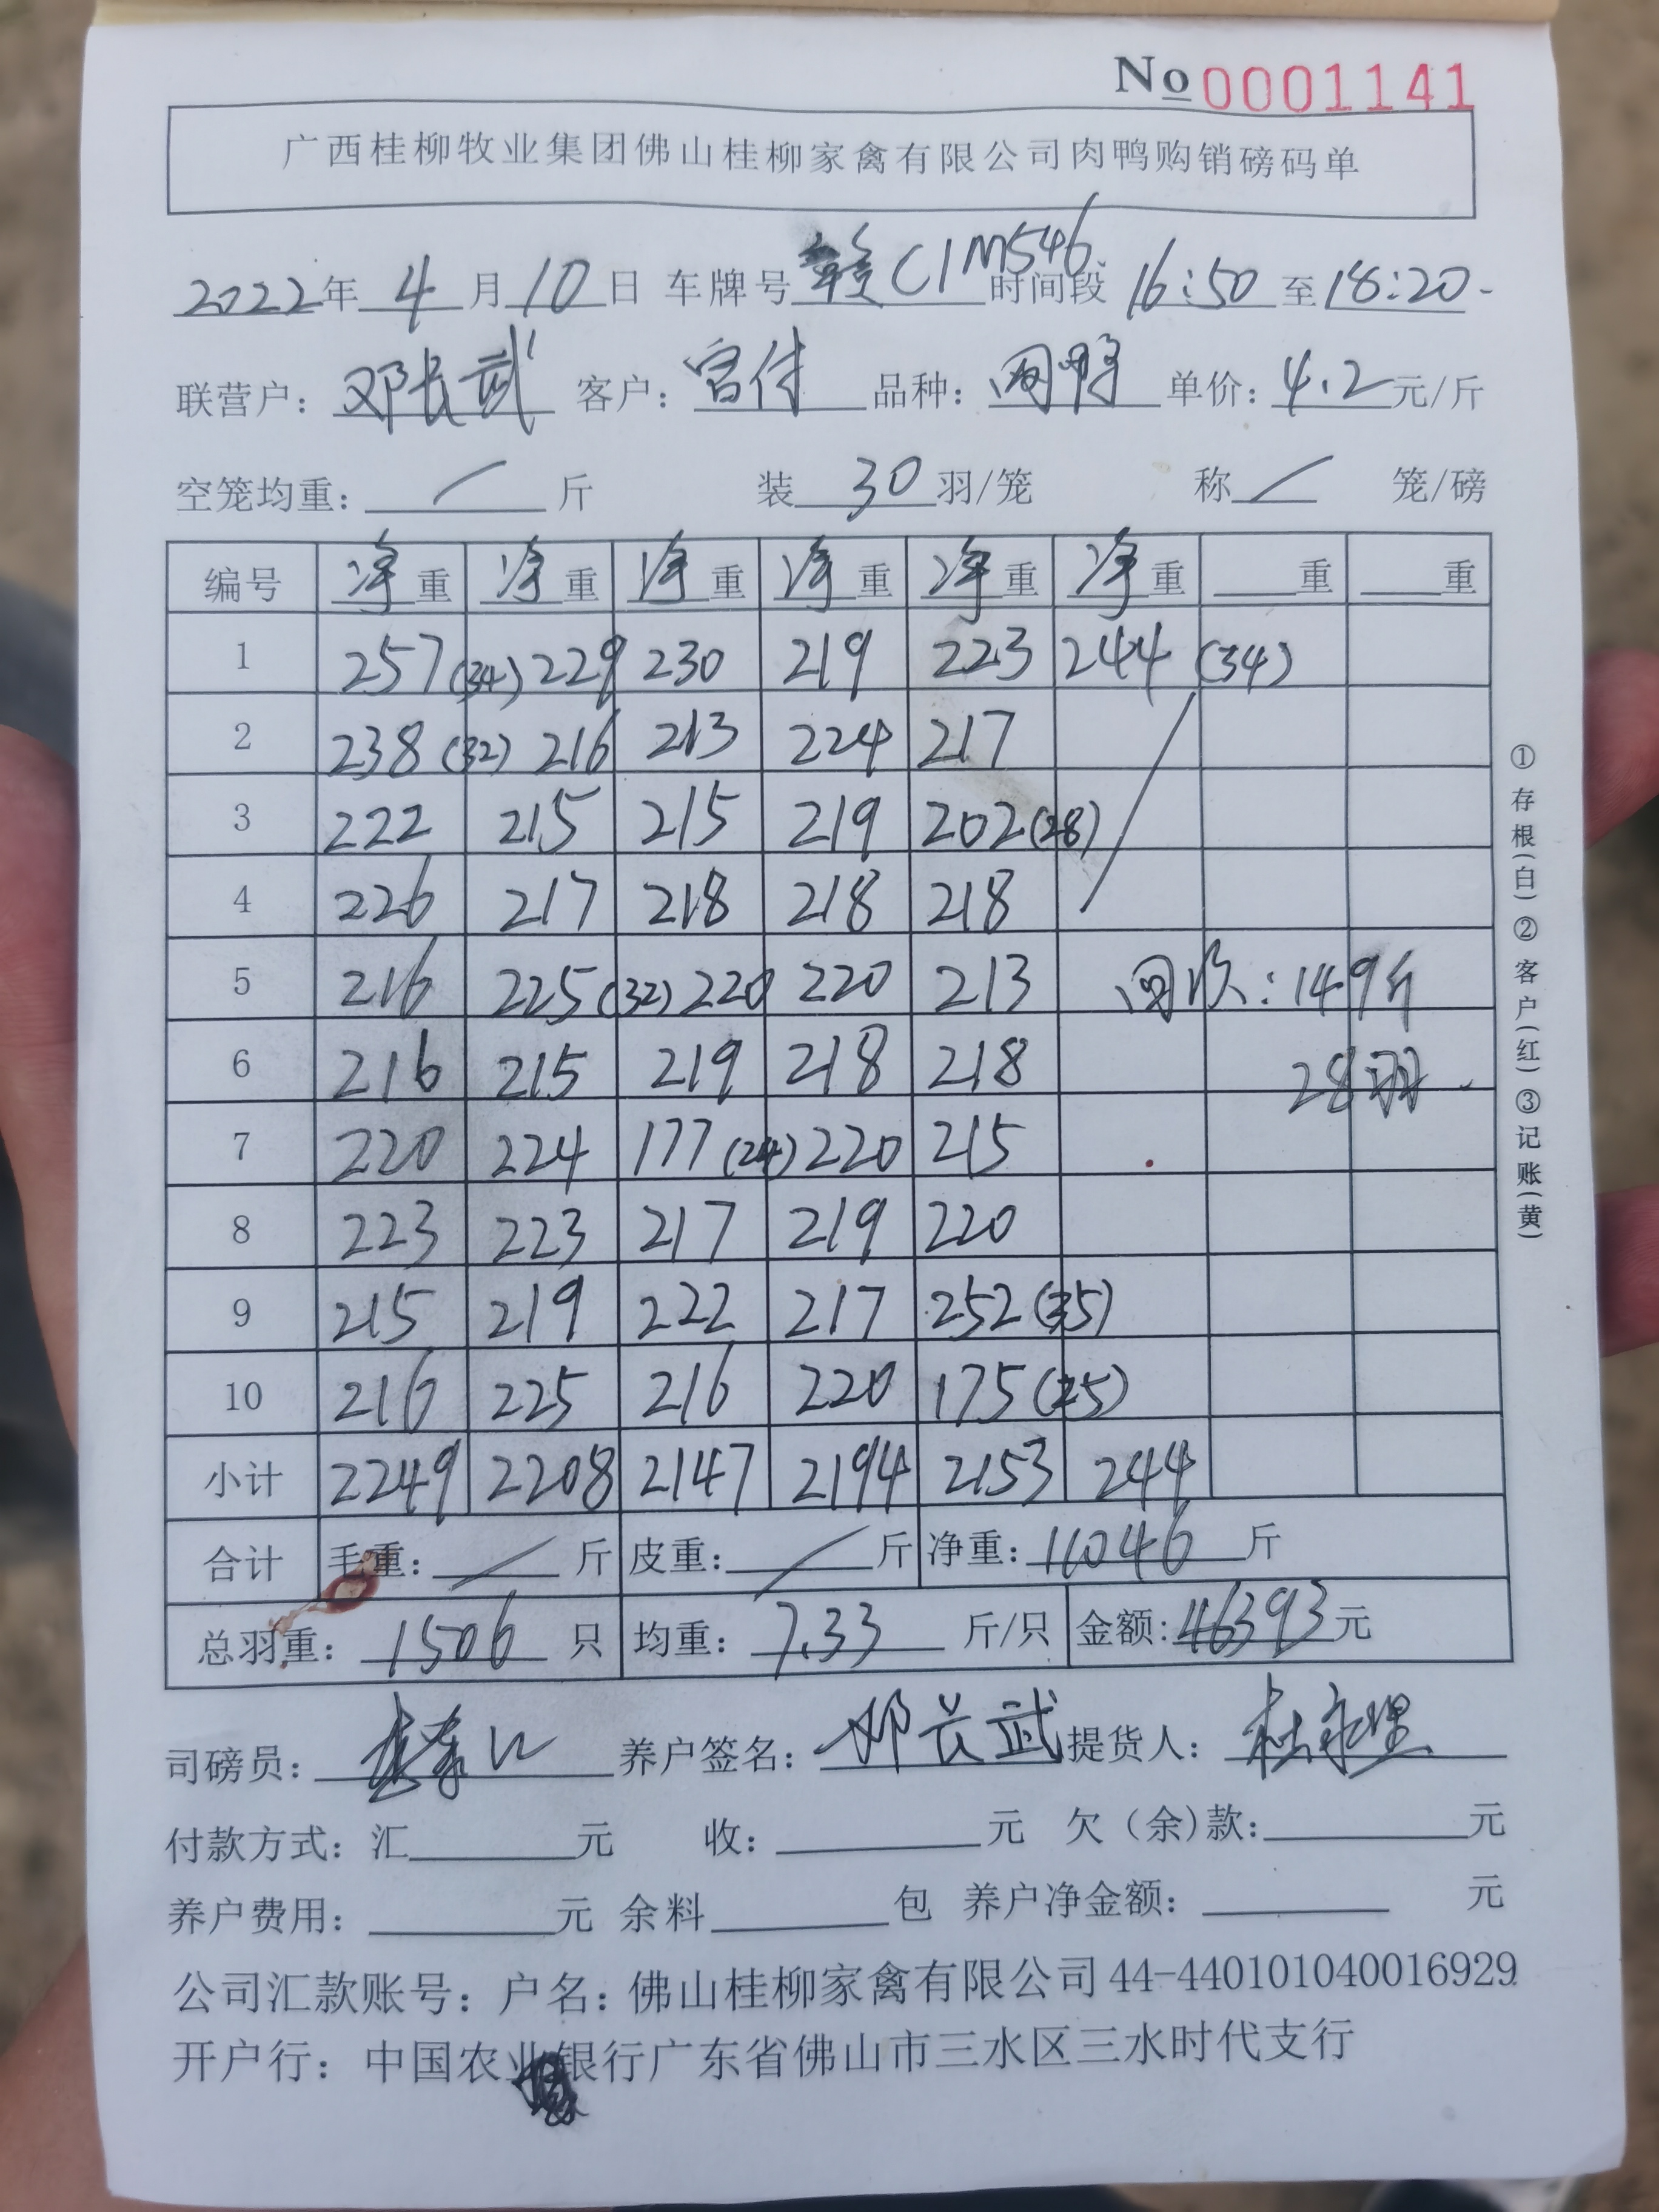 No 0001141
广西桂柳牧业集团佛山桂柳家禽有限公司肉鸭购销磅码单
2022年 4 月 10 日 车牌号 赣C1M546 时间段 16:50 至 18:20
联营户: 邓长武 客户: 品种: 肉鸭 单价: 4.2 元/斤
空笼均重: / 斤 装 30 羽/笼 称 / 笼/磅
编号 净重 净重 净重 净重 净重 净重 重 重
1 257(34) 229 230 219 223 244 (34)
2 238(32) 216 213 224 217
3 222 215 215 219 202(28)
4 226 217 218 218 218
5 216 225(32) 220 220 213 回收:149斤
6 216 215 219 218 218 28羽
7 220 224 177(24) 220 215
8 223 223 217 219 220
9 215 219 222 217 252(35)
10 216 225 216 220 175(25)
小计 2249 2208 2147 2194 2153 244
合计 毛重: / 斤 皮重: / 斤 净重: 11046 斤
总羽重: 1506 只 均重: 7.33 斤/只 金额: 46393 元
司磅员: 养户签名: 邓长武 提货人:
付款方式: 汇 元 收: 元 欠(余)款: 元
养户费用: 元 余料 包 养户净金额: 元
公司汇款账号: 户名: 佛山桂柳家禽有限公司 44-440101040016929
开户行: 中国农业银行广东省佛山市三水区三水时代支行
①存根(白)②客户(红)③记账(黄)